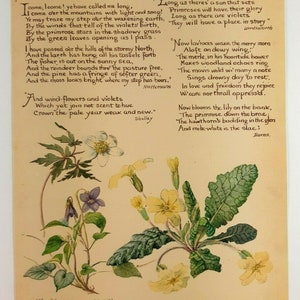 I come, I come! ye have called me long,
I come o'er the mountains with light and song!
Ye may trace my step o'er the wakening earth,
By the winds that tell of the violet's birth,
By the primrose stars in the shadowy grass
By the green leaves opening as I pass.
I have passed o'er the hills of the stormy North,
And the larch has hung all his tassels forth
The fisher is out on the sunny sea,
And the reindeer bounds thro' the pasture free,
And the pine has a fringe of softer green,
And the moss looks bright where my step has been.
And wind-flowers and violets
Which yet join not scent to hue
Crown the pale year weak and new.
Shelley
Long as there's a sun that sets
Primroses will have their glory
Long as there are violets
They will have a place in story
Wordsworth
Now laverocks wake the merry morn
Aloft on dewy wing,
The merle, in his noontide bower
Makes woodland echoes ring
The mavis wild wi' many a note
Sings drowsy day to rest:
In love and freedom they rejoice
Wi' care nor thrall oppress'd.
Now blooms the lily on the bank,
The primrose down the brae,
The hawthorn's budding in the glen
And milk-white is the slae;
Burns